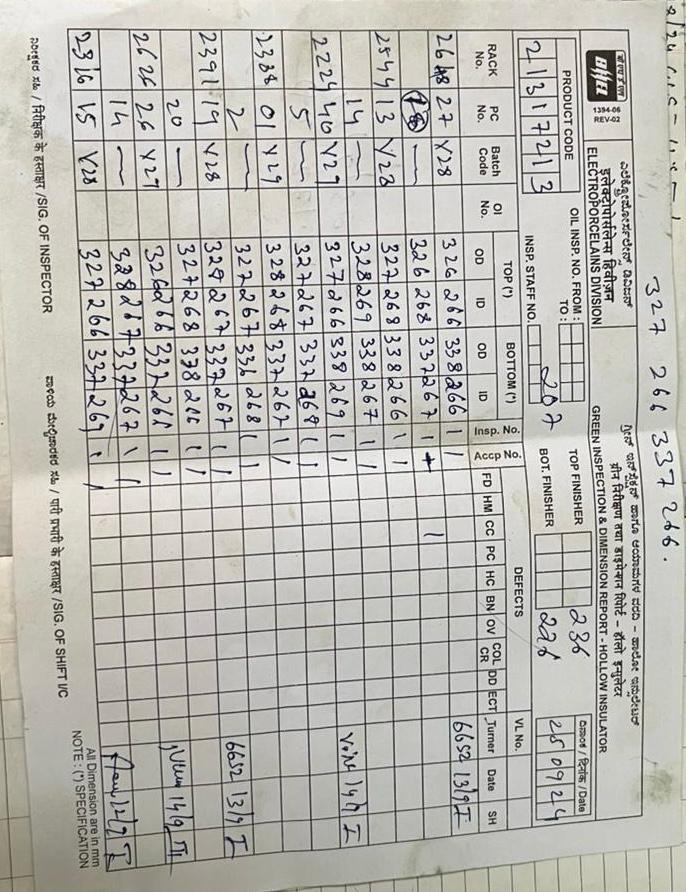 327 266 337 266.
बी एच ई एल
BHEL
1394-06
REV-02
ಎಲೆಕ್ಟ್ರೋಪೋರ್ಸಲೇನ್ಸ್ ಡಿವಿಜನ್
इलेक्ट्रोपोर्सलेन्स डिवीज़न
ELECTROPORCELAINS DIVISION
ಗ್ರೀನ್ ಇನ್‌ಸ್ಪೆಕ್ಷನ್ ಹಾಗೂ ಆಯಾಮಗಳ ವರದಿ – ಹಾಲೋ ಇನ್ಸುಲೇಟರ್
ग्रीन निरीक्षण तथा डाइमेन्शन रिपोर्ट – हॉलो इन्सुलेटर
GREEN INSPECTION & DIMENSION REPORT - HOLLOW INSULATOR
PRODUCT CODE
21317213
OIL INSP. NO. FROM :
TO :
INSP. STAFF NO. 207
TOP FINISHER 236
BOT. FINISHER 226
ದಿನಾಂಕ / दिनांक /Date
250924
RACK No. PC No. Batch Code OI No. TOP (*) BOTTOM (*) Insp. No. Accp No. DEFECTS VL No.
OD ID OD ID FD HM CC PC HC BN OV COL CR DD ECT Turner Date SH
27 Y28 326 266 338 266 1 1 6652 13/9 I
326 268 337 267 1 1
2544 13 Y28 327 268 338 266 1 1
14 328 269 338 267 1 1
2224 40 Y27 327 266 338 269 1 1 14/9 I
5 327 267 337 268 1 1
2388 01 Y29 328 268 337 267 1 1
2 327 267 336 268 1 1
2391 19 Y28 328 267 337 267 1 1 6652 13/9 I
20 327 268 338 266 1 1
2626 26 Y27 326 266 337 266 1 1 14/9 III
14 328 267 337 267 1 1
2316 15 Y28 327 266 337 267 1 1 12/9 I
All Dimension are in mm
NOTE : (*) SPECIFICATION
ನಿರೀಕ್ಷಕರ ಸಹಿ / निरीक्षक के हस्ताक्षर /SIG. OF INSPECTOR
ಪಾಳಿಯ ಮೇಲ್ವಿಚಾರಕರ ಸಹಿ / पारी प्रभारी के हस्ताक्षर /SIG. OF SHIFT I/C